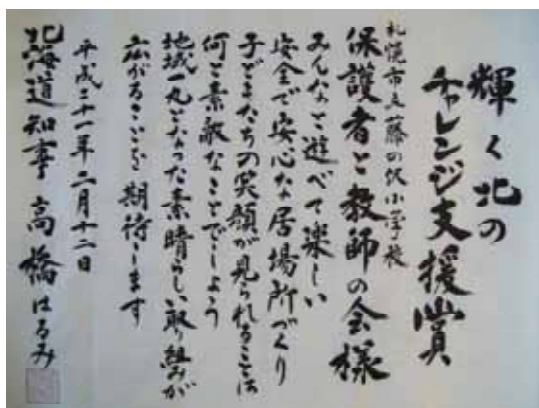 輝く北の
チャレンジ支援賞
札幌市立藤の沢小学校
保護者と教師の会様
みんなと遊べて楽しい
安全で安心な居場所づくり
子どもたちの笑顔が見られることは
何と素敵なことでしょう
地域一丸となった素晴らしい取り組みが
広がることを期待します
平成二十一年二月十二日
北海道知事 高橋はるみ